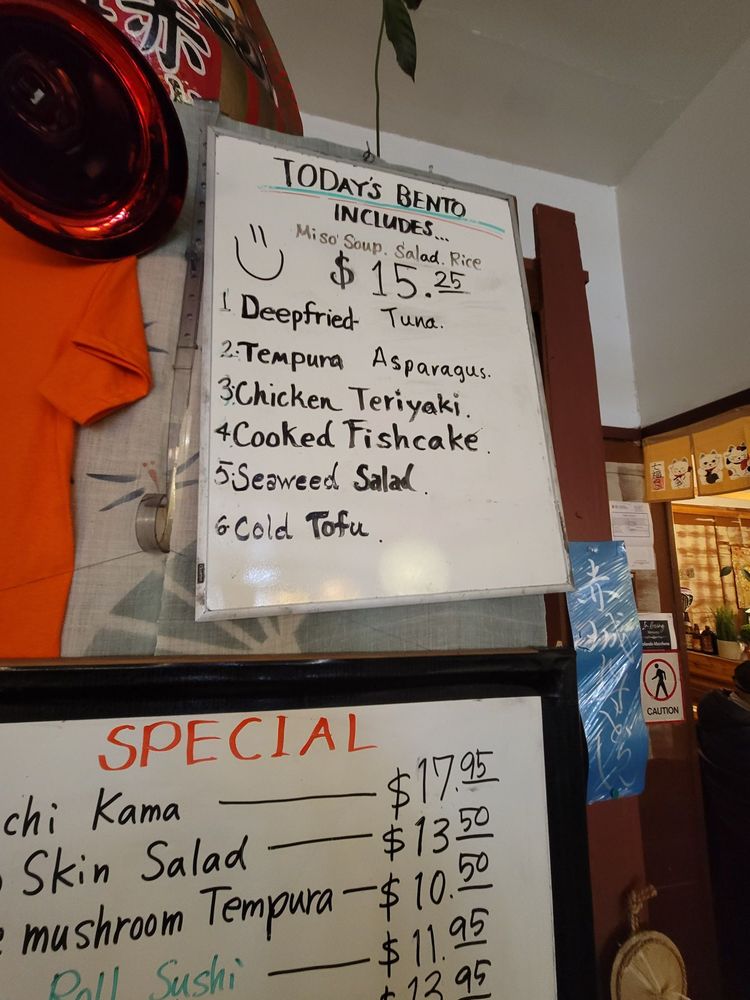 TODAY'S BENTO
INCLUDES...
Miso Soup. Salad. Rice
$15.25
1 Deepfried Tuna.
2. Tempura Asparagus.
3. Chicken Teriyaki.
4 Cooked Fishcake.
5. Seaweed Salad.
6 Cold Tofu.
SPECIAL
Kama $17.95
Skin Salad $13.50
mushroom Tempura $10.50
$11.95
Roll Sushi $13.95
CAUTION